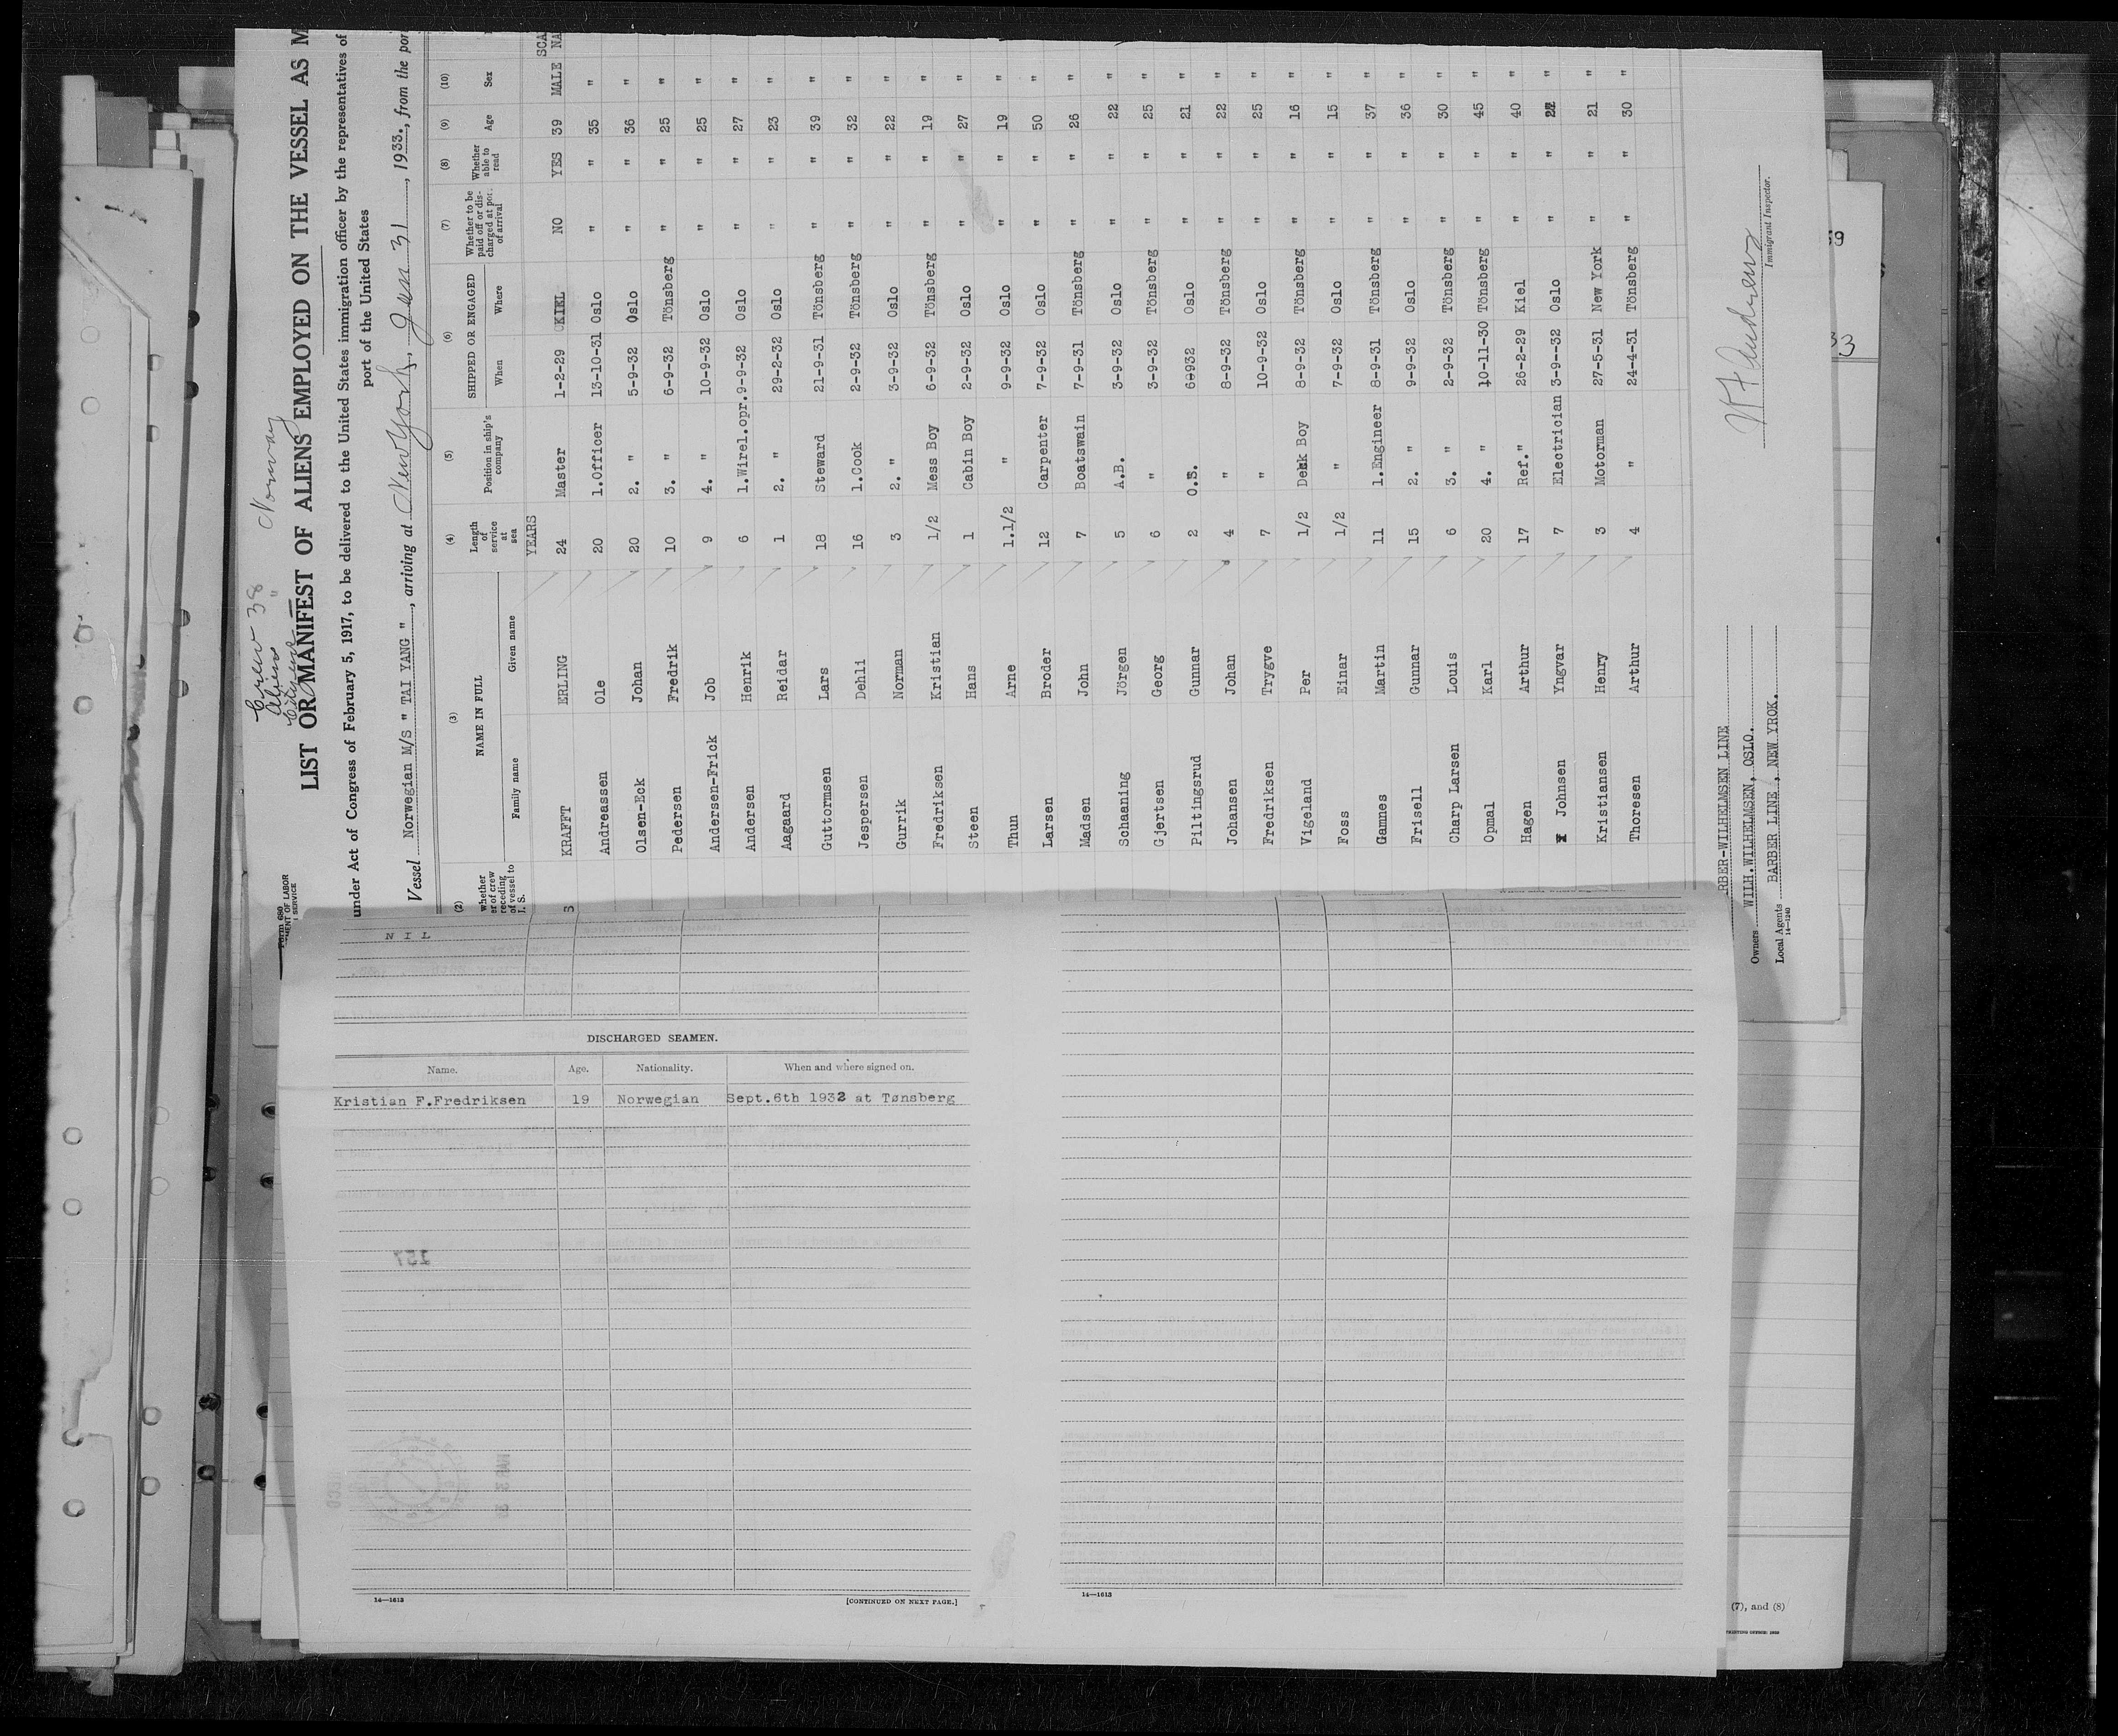 Crew 38 Norway
Aliens "
Citizens —
Form 680
LIST OR MANIFEST OF ALIENS EMPLOYED ON THE VESSEL AS M
under Act of Congress of February 5, 1917, to be delivered to the United States immigration officer by the representatives of
port of the United States
Vessel Norwegian M/S " TAI YANG ", arriving at New York, Jan 31, 1933., from the por
(2) (3) (4) (5) (6) (7) (8) (9) (10)
whether er of crew receding of vessel to U. S. NAME IN FULL Length of service at sea Position in ship's company SHIPPED OR ENGAGED Whether to be paid off or discharged at port of arrival Whether able to read Age Sex
Family name Given name When Where
YEARS SCA
S KRAFFT ERLING 24 Master 1-2-29 KIEL NO YES 39 MALE NA
Andreassen Ole 20 1.Officer 13-10-31 Oslo " " 35 "
Olsen-Eck Johan 20 2. " 5-9-32 Oslo " " 36 "
Pedersen Fredrik 10 3. " 6-9-32 Tönsberg " " 25 "
Andersen-Frick Job 9 4. " 10-9-32 Oslo " " 25 "
Andersen Henrik 6 1.Wirel.opr. 9-9-32 Oslo " " 27 "
Aagaard Reidar 1 2. " 29-2-32 Oslo " " 23 "
Guttormsen Lars 18 Steward 21-9-31 Tönsberg " " 39 "
Jespersen Dehli 16 1.Cook 2-9-32 Tönsberg " " 32 "
Gurrik Norman 3 2. " 3-9-32 Oslo " " 22 "
Fredriksen Kristian 1/2 Mess Boy 6-9-32 Tönsberg " " 19 "
Steen Hans 1 Cabin Boy 2-9-32 Oslo " " 27 "
Thun Arne 1.1/2 " 9-9-32 Oslo " " 19 "
Larsen Broder 12 Carpenter 7-9-32 Oslo " " 50 "
Madsen John 7 Boatswain 7-9-31 Tönsberg " " 26 "
Schaaning Jörgen 5 A.B. 3-9-32 Oslo " " 22 "
Gjertsen Georg 6 " 3-9-32 Tönsberg " " 25 "
Piltingsrud Gunnar 2 O.S. 6-9-32 Oslo " " 21 "
Johansen Johan 4 " 8-9-32 Tönsberg " " 22 "
Fredriksen Trygve 7 " 10-9-32 Oslo " " 25 "
Vigeland Per 1/2 Deck Boy 8-9-32 Tönsberg " " 16 "
Foss Einar 1/2 " 7-9-32 Oslo " " 15 "
Gamnes Martin 11 1.Engineer 8-9-31 Tönsberg " " 37 "
Frisell Gunnar 15 2. " 9-9-32 Oslo " " 36 "
Charp Larsen Louis 6 3. " 2-9-32 Tönsberg " " 30 "
Opmal Karl 20 4. " 10-11-30 Tönsberg " " 45 "
Hagen Arthur 17 Ref." 26-2-29 Kiel " " 40 "
Johnsen Yngvar 7 Electrician 3-9--32 Oslo " " "
Kristiansen Henry 3 Motorman 27-5-31 New York " " 21 "
Thoresen Arthur 4 " 24-4-31 Tönsberg " " 30 "
RBER-WILHELMSEN LINE
Owners WILH.WILHELMSEN, OSLO.
Local Agents BARBER LINE, NEW YROK.
14—1240
Immigrant Inspector.
N I L
DISCHARGED SEAMEN.
Name. Age. Nationality. When and where signed on.
Kristian F.Fredriksen 19 Norwegian Sept.6th 1932 at Tønsberg
157
14—1613 [CONTINUED ON NEXT PAGE.]
14—1613
59
33
(7), and (8)